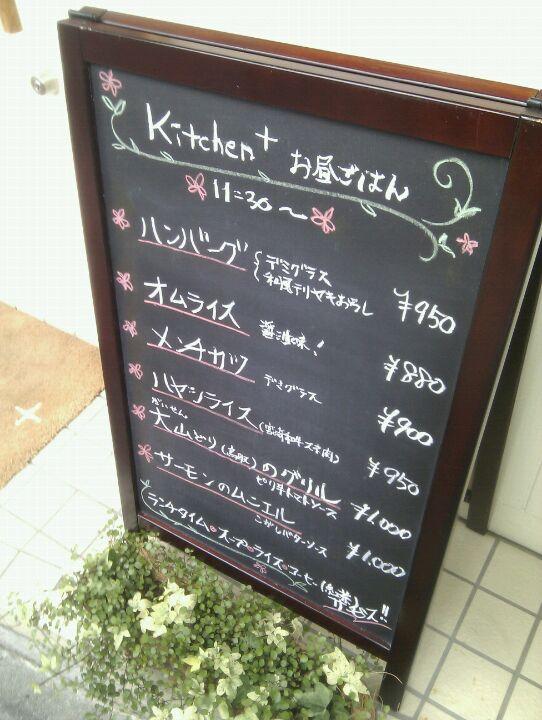 Kitchen+ お昼ごはん
11:30〜
ハンバーグ {デミグラス ¥950
和風テリヤキおろし
オムライス 醤油味! ¥880
メンチカツ デミグラス ¥900
ハヤシライス (宮崎和牛スネ肉) ¥950
だいせん
大山どり(鳥取)のグリル ピリ辛トマトソース ¥1.000
サーモンのムニエル こがしバターソース ¥1.000
ランチタイム スープ ライス コーヒー(紅茶)
サービス!!